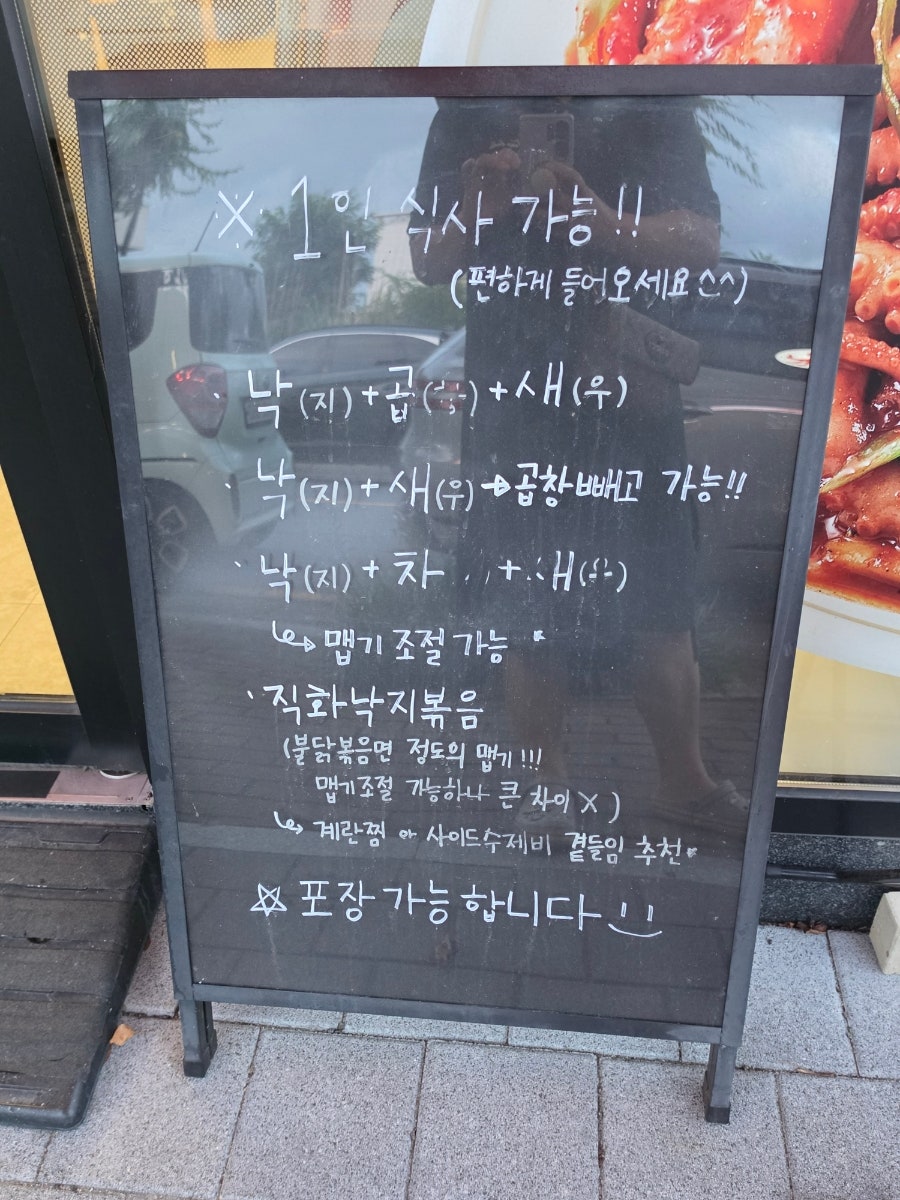 ※ 1인 식사 가능!!
(편하게 들어오세요^^)
· 낙(지)+곱( )+새(우)
· 낙(지)+새(우)→곱창빼고 가능!!
· 낙(지)+차 +새( )
↳ 맵기 조절 가능
· 직화낙지볶음
(불닭볶음면 정도의 맵기!!!
맵기조절 가능하나 큰 차이 X)
↳ 계란찜 or 사이드수제비 곁들임 추천
☆ 포장 가능합니다